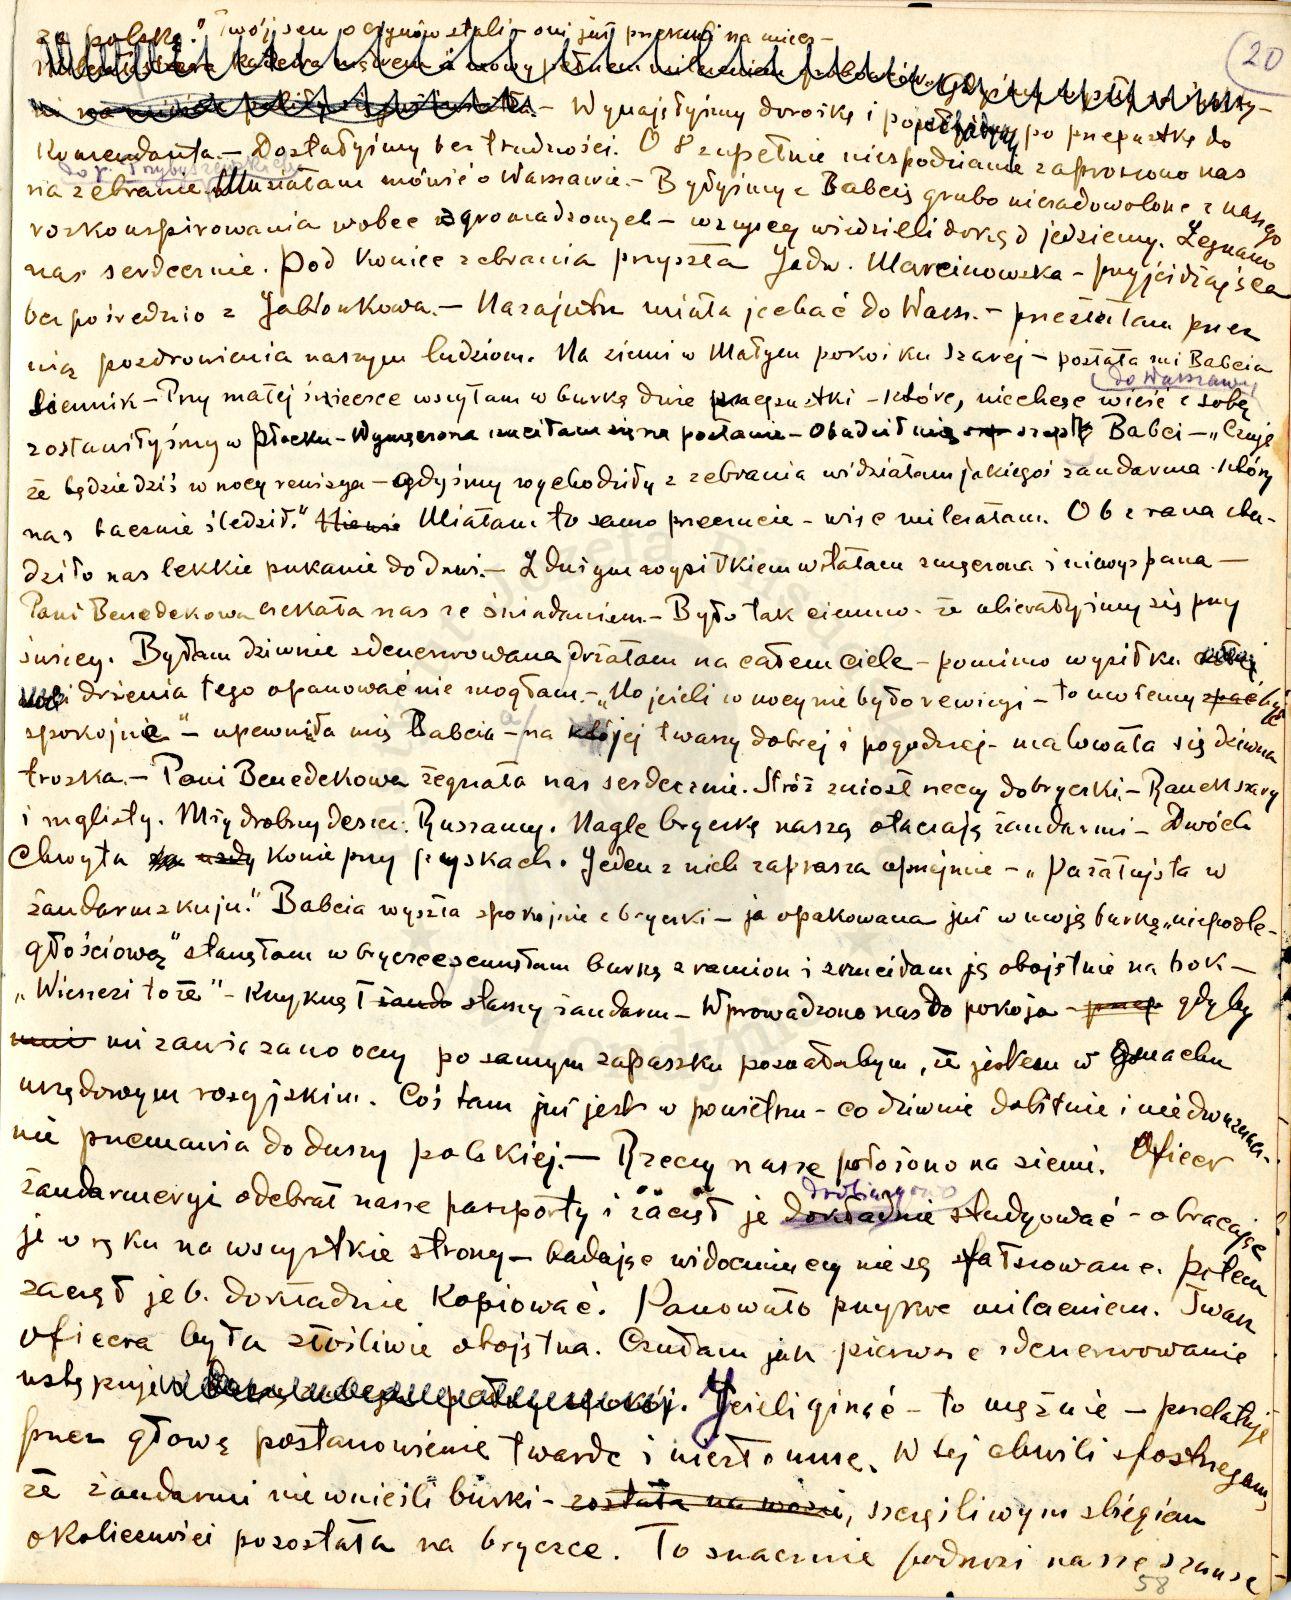 20
za polskę." Twój sen o czynów stali - oni już
- Wynajęłyśmy dorożkę i po przepustkę do
Komendanta. - Dostałyśmy bez trudności. O 8 zupełnie niespodzianie zaproszono nas
na zebranie do p. Musiałam mówić o Warszawie. - Byłyśmy z Babcią grubo niezadowolone z naszego
rozkonspirowania wobec zgromadzonych - wszyscy wiedzieli dokąd jedziemy. Żegnano
nas serdecznie. Pod koniec zebrania przyszła Jadw. Marcinowska - przyjeżdżająca
bezpośrednio z Jabłonkowa. - Nazajutrz miała jechać do Warsz. - przesłałam przez
nią pozdrowienia naszym ludziom. Na ziemi w małym pokoiku Szarej - posłała mi Babcia
do Warszawy
siennik - Przy małej świeczce wszyłam w burkę dwie przepustki - które, nie chcąc wieźć z sobą
zostawiłyśmy w Płocku - Wymęczona rzuciłam się na posłanie - Obudził mię szept Babci - „Czuję
że będzie dziś w nocy rewizya - gdyśmy wychodziły z zebrania widziałam jakiegoś żandarma który
nas bacznie śledził." Miałam to samo przeczucie - więc milczałam. O 6 z rana obu-
dziło nas lekkie pukanie do drzwi. - Z dużym wysiłkiem wstałam zmęczona i niewyspana -
Pani Benedekowa czekała nas ze śniadaniem. - Było tak ciemno - że ubierałyśmy się przy
świecy. Byłam dziwnie zdenerwowana drżałam na całem ciele - pomimo wysiłku
woli drżenia tego opanować nie mogłam. - „No jeżeli w nocy nie było rewizyi - to możemy być
spokojne" - upewniła mię Babcia - a na jej twarzy dobrej i pogodnej - malowała się dziwna
troska. - Pani Benedekowa żegnała nas serdecznie. Stróż zniósł rzeczy do bryczki. - Ranek szary
i mglisty. Mży drobny deszcz. Ruszamy. Nagle bryczkę naszą otaczają żandarmi - Dwóch
chwyta konie przy pyskach. Jeden z nich zaprasza uprzejmie - „Pażałujsta w
żandarmskuju." Babcia wyszła spokojnie z bryczki - ja opakowana już w moją burkę „niepodle-
głościową" stanęłam w bryczce zsunęłam burkę z ramion i zrzuciłam ją obojętnie na bok -
„Wieszczi toże" - Krzyknął starszy żandarm - Wprowadzono nas do pokoju - gdyby
mi zawiązano oczy po samym zapaszku poznałabym, że jestem w gmachu
urzędowym rosyjskim. Coś tam już jest w powietrzu - co dziwnie dobitnie i niedwuznacz-
nie przemawia do duszy polskiej. - Rzeczy nasze położono na ziemi. Oficer
żandarmeryi odebrał nasze paszporty i zaczął je drobiazgowo studyować - obracając
je w ręku na wszystkie strony - badając widocznie czy nie są sfałszowane. Potem
zaczął je b. dokładnie kopiować. Panowało przykre milczenie. Twarz
oficera była złośliwie obojętna. Czułam jak pierwsze zdenerwowanie
ustępuje. Jeżeli ginąć - to mężnie - przelatuje
przez głowę postanowienie twarde i niezłomne. W tej chwili spostrzegam,
że żandarmi nie wnieśli burki - została na wozie, szczęśliwym zbiegiem
okoliczności pozostała na bryczce. To znacznie podnosi nasze szanse
58